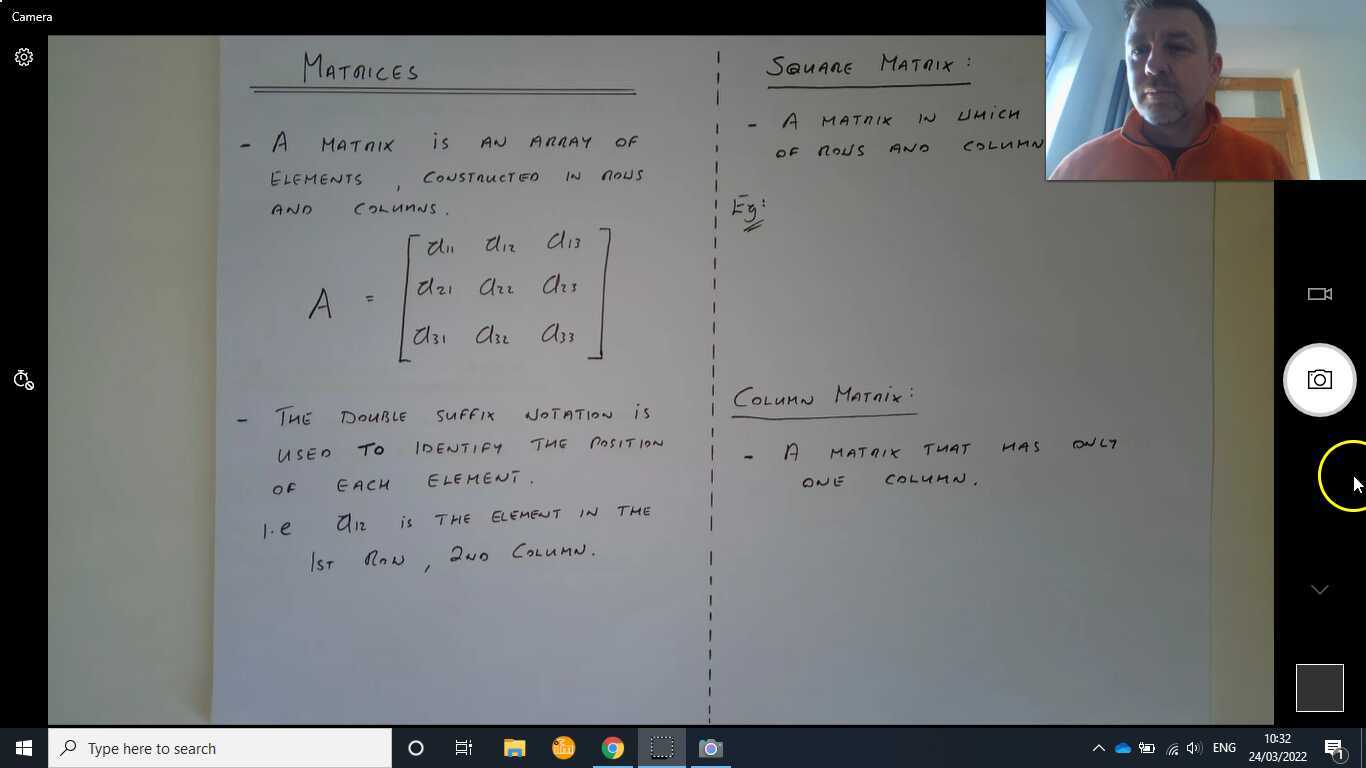 Camera
MATRICES
- A MATRIX IS AN ARRAY OF
ELEMENTS, CONSTRUCTED IN ROWS
AND COLUMNS.
A = [ a11 a12 a13
a21 a22 a23
a31 a32 a33 ]
- THE DOUBLE SUFFIX NOTATION IS
USED TO IDENTIFY THE POSITION
OF EACH ELEMENT.
I.e a12 IS THE ELEMENT IN THE
1ST ROW, 2ND COLUMN.
SQUARE MATRIX:
- A MATRIX IN WHICH
OF ROWS AND COLUMN
Eg:
COLUMN MATRIX:
- A MATRIX THAT HAS ONLY
ONE COLUMN.
Type here to search
ENG
10:32
24/03/2022
1